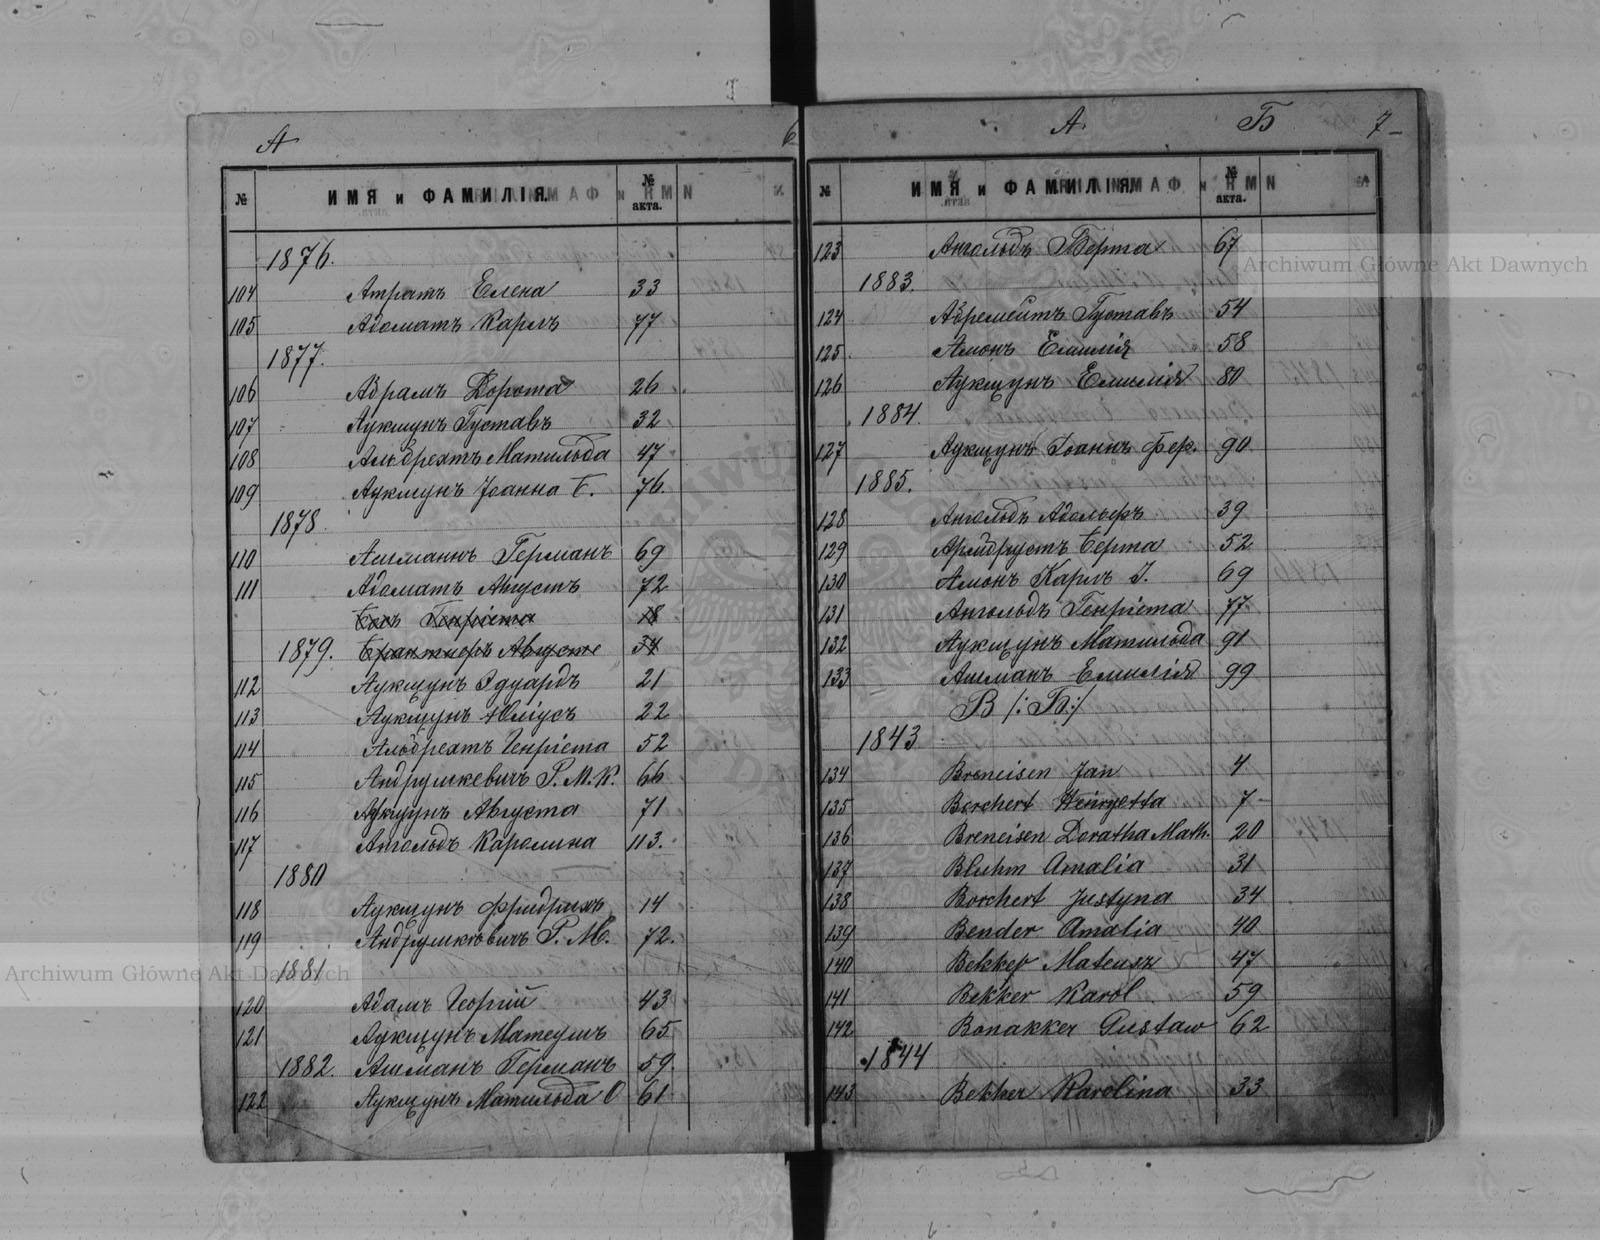 А 6
№ ИМЯ и ФАМИЛІЯ № акта.
1876.
104 Атратъ Елена 33
105 Адоматъ Карлъ 77
1877.
106 Абрамъ Дорота 26
107 Аукщунъ Густавъ 32
108 Альбрехтъ Матильда 47
109 Аукщунъ Јоанна Е. 76.
1878
110 Ашманнъ Германъ 69
111 Адоматъ Августъ 72
Генріета 18
1879. 34
112 Аукщунъ Эдуардъ 21
113 Аукщунъ Юліусъ 22
114 Альбрехтъ Генріета 52
115 Андрушкевичъ Р. М. К. 66
116 Аукщунъ Августа 71
117 Ангольдъ Каролина 113.
1880
118 Аукщунъ Фридрихъ 14
119 Андрушкевичъ Р. М. 72.
1881
120 Адамъ Георгій 43
121 Аукщунъ Матеушъ 65
1882. Ашманъ Германъ 59.
122 Аукщунъ Матильда О 61
А Б 7
№ ИМЯ и ФАМИЛІЯ № акта.
123 Ангольдъ Берта 67
1883.
124 Густавъ 54
125 Амонъ Емилія 58
126 Аукщунъ Емилія 80
1884.
127 Аукщунъ Іоаннъ Фер. 90
1885.
128 Ангольдъ Адольфъ 39
129 Армбрустъ Берта 52
130 Амонъ Карлъ І. 69
131 Ангольдъ Генріета 77
132 Аукщунъ Матильда 91
133 Ашманъ Емилія 99
В /:Б:/
1843
134 Breneisen Jan 4
135 Borchert Henryetta 7
136 Breneisen Doratha Math. 20
137 Bluhm Amalia 31
138 Borchert Justyna 34
139 Bender Amalia 40
140 Bekker Mateusz 47
141 Bekker Karol 59
142 Bonakker Gustaw 62
1844
143 Bekker Karolina 33
Archiwum Główne Akt Dawnych
Archiwum Główne Akt Dawnych